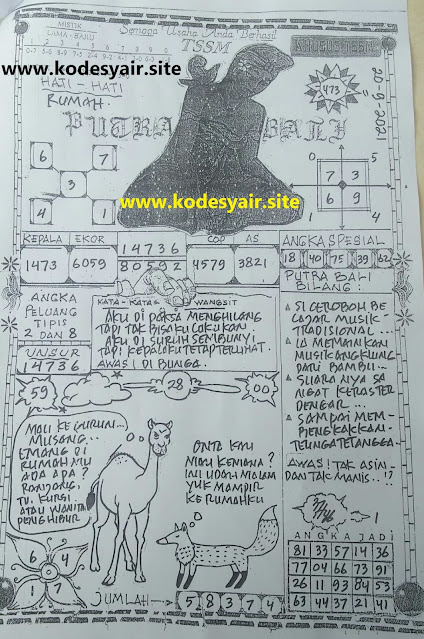 MISTIK
LIMA - BARU
1 2 3 4 5 6 7 8 9 0
Semoga Usaha Anda Berhasil
TSSM
www.kodesyair.site
20-9-2021
473
HATI - HATI
RUMAH.
PUTRA BALI
6 7
3
4 1
0 5
7 3
6 9
www.kodesyair.site
KEPALA EKOR
1473 6059
14736
80592
COP AS
4579 3821
ANGKA SPESIAL
18 40 75 39 62
PUTRA BALI
BILANG:
SI CEROBOH BE
LAJAR MUSIK
TRADISIONAL...
IA MEMAINKAN
MUSIK ANGKLUNG
DARI BAMBU...
SUARA NYA SA
NGAT KERAS TER
DENGAR...
SAMPAI MEM-
PENGKAKKAN
TELINGA TETANGGA.
AWAS! TAK ASIN
DAN TAK MANIS..!?
ANGKA
PELUANG
TIPIS
2 DAN 8
UNSUR
14736
KATA - KATA WANGSIT
AKU DI PAKSA MENGHILANG
TAPI TAK BISA KU LAKUKAN.
AKU DI SURUH SEMBUNYI
TAPI KEPALAKU TETAP TERLIHAT.
AWAS! DI BUNGA.
59 28 00
MAU KE GURUN...
MUSANG...
EMANG DI
RUMAH MU
ADA APA?
RANJANG,
TV, KURSI
ATAU WANITA
PENGHIBUR
ONTA KAU
MAU KEMANA?
INI UDAH MALAM
YUK MAMPIR
KE RUMAHKU
6 4
1 7
JUMLAH 5 8 3 7 4
ANGKA JADI
81 33 57 14 36
77 04 66 73 91
26 11 93 84 53
63 44 37 21 41